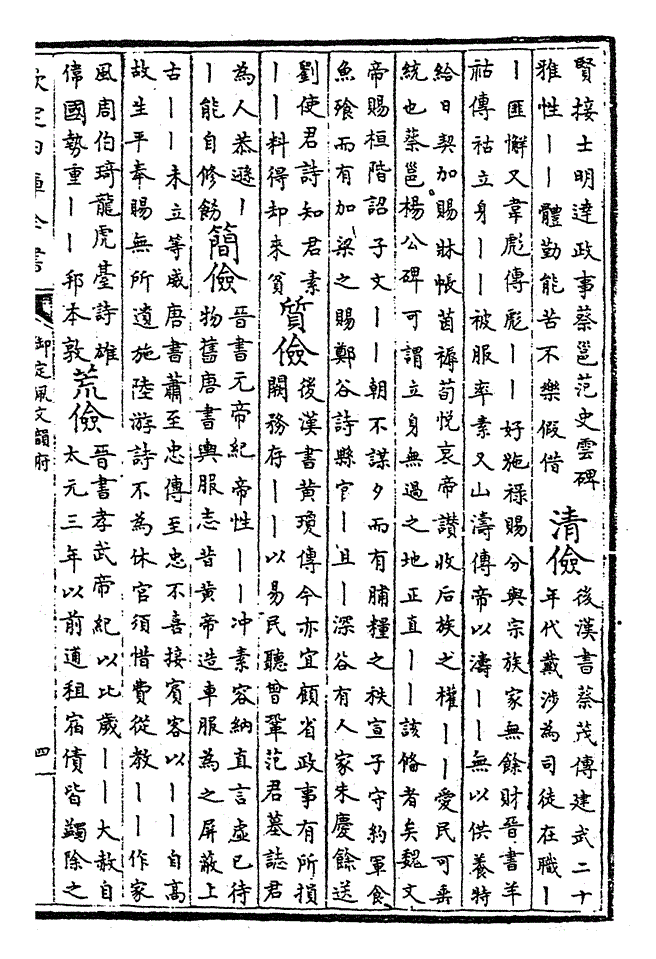 賢接士明達政事蔡邕范史雲碑
雅性丨丨體勤能苦不樂假借
清儉
後漢書蔡茂傳建武二十
年代戴涉為司徒在職丨
丨匪懈又韋彪傳彪丨丨好施祿賜分與宗族家無餘財晉書羊
祜傳祜立身丨丨被服率素又山濤傳帝以濤丨丨無以供養特
給日契加賜牀帳茵褥荀悅哀帝讚收后族之權丨丨愛民可垂
統也蔡邕楊公碑可謂立身無過之地正直丨丨該備者矣魏文
帝賜桓階詔子文丨丨朝不謀夕而有脯糧之秩宣子守約軍食
魚飱而有加梁之賜鄭谷詩縣官丨且丨深谷有人家朱慶餘送
劉使君詩知君素
丨丨料得却來貧
質儉
後漢書黄瓊傳今亦宜顧省政事有所損
闕務存丨丨以易民聽曾鞏范君墓誌君
為人恭遜丨
丨能自修飭
簡儉
晉書元帝紀帝性丨丨冲素容納直言虛已待
物舊唐書輿服志昔黄帝造車服為之屏蔽上
古丨丨未立等威唐書蕭至忠傳至忠不喜接賓客以丨丨自高
故生平奉賜無所遺施陸游詩不為休官須惜費從教丨丨作家
風周伯琦龍虎臺詩雄
偉國勢重丨丨邦本敦
荒儉
晉書孝武帝紀以比歲丨丨大赦自
太元三年以前逋租宿債皆蠲除之
欽定四庫全書
御定佩文韻府
四